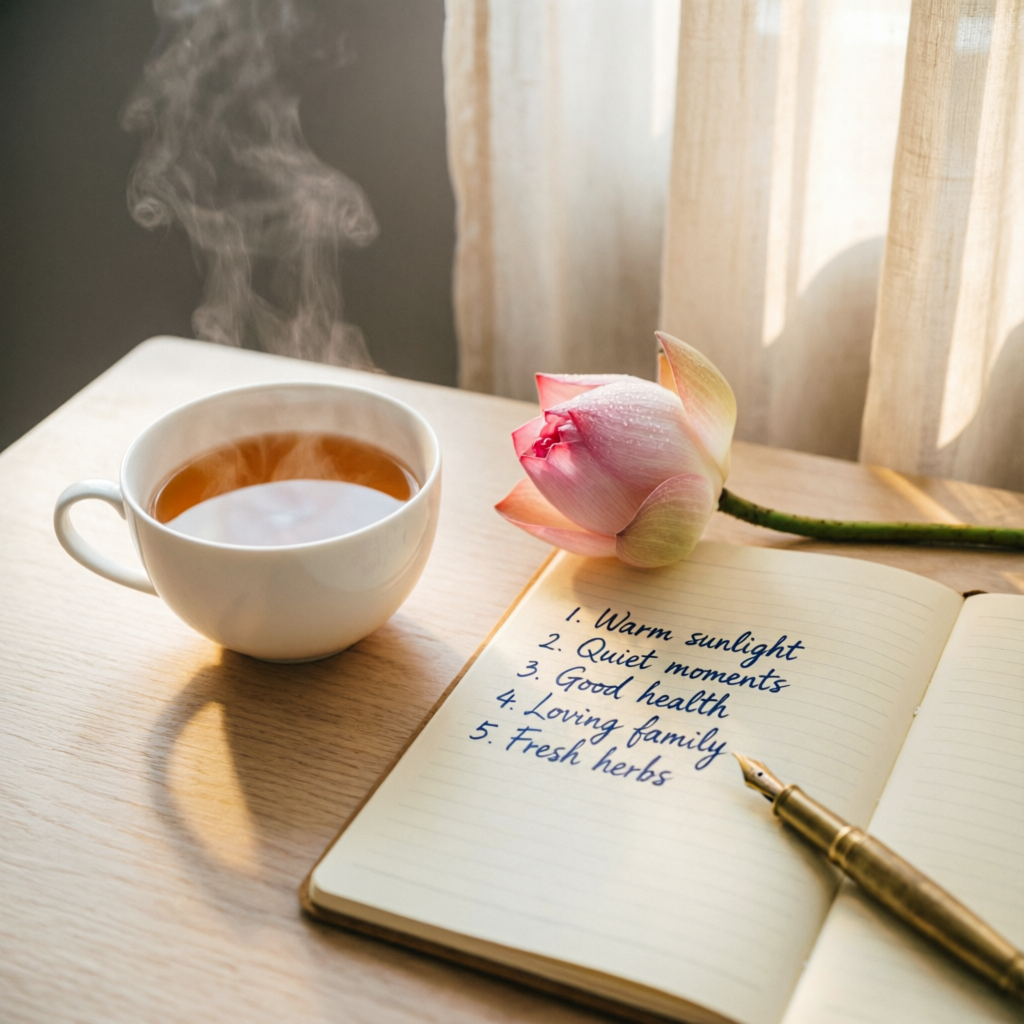 1. Warm sunlight
2. Quiet moments
3. Good health
4. Loving family
5. Fresh herbs